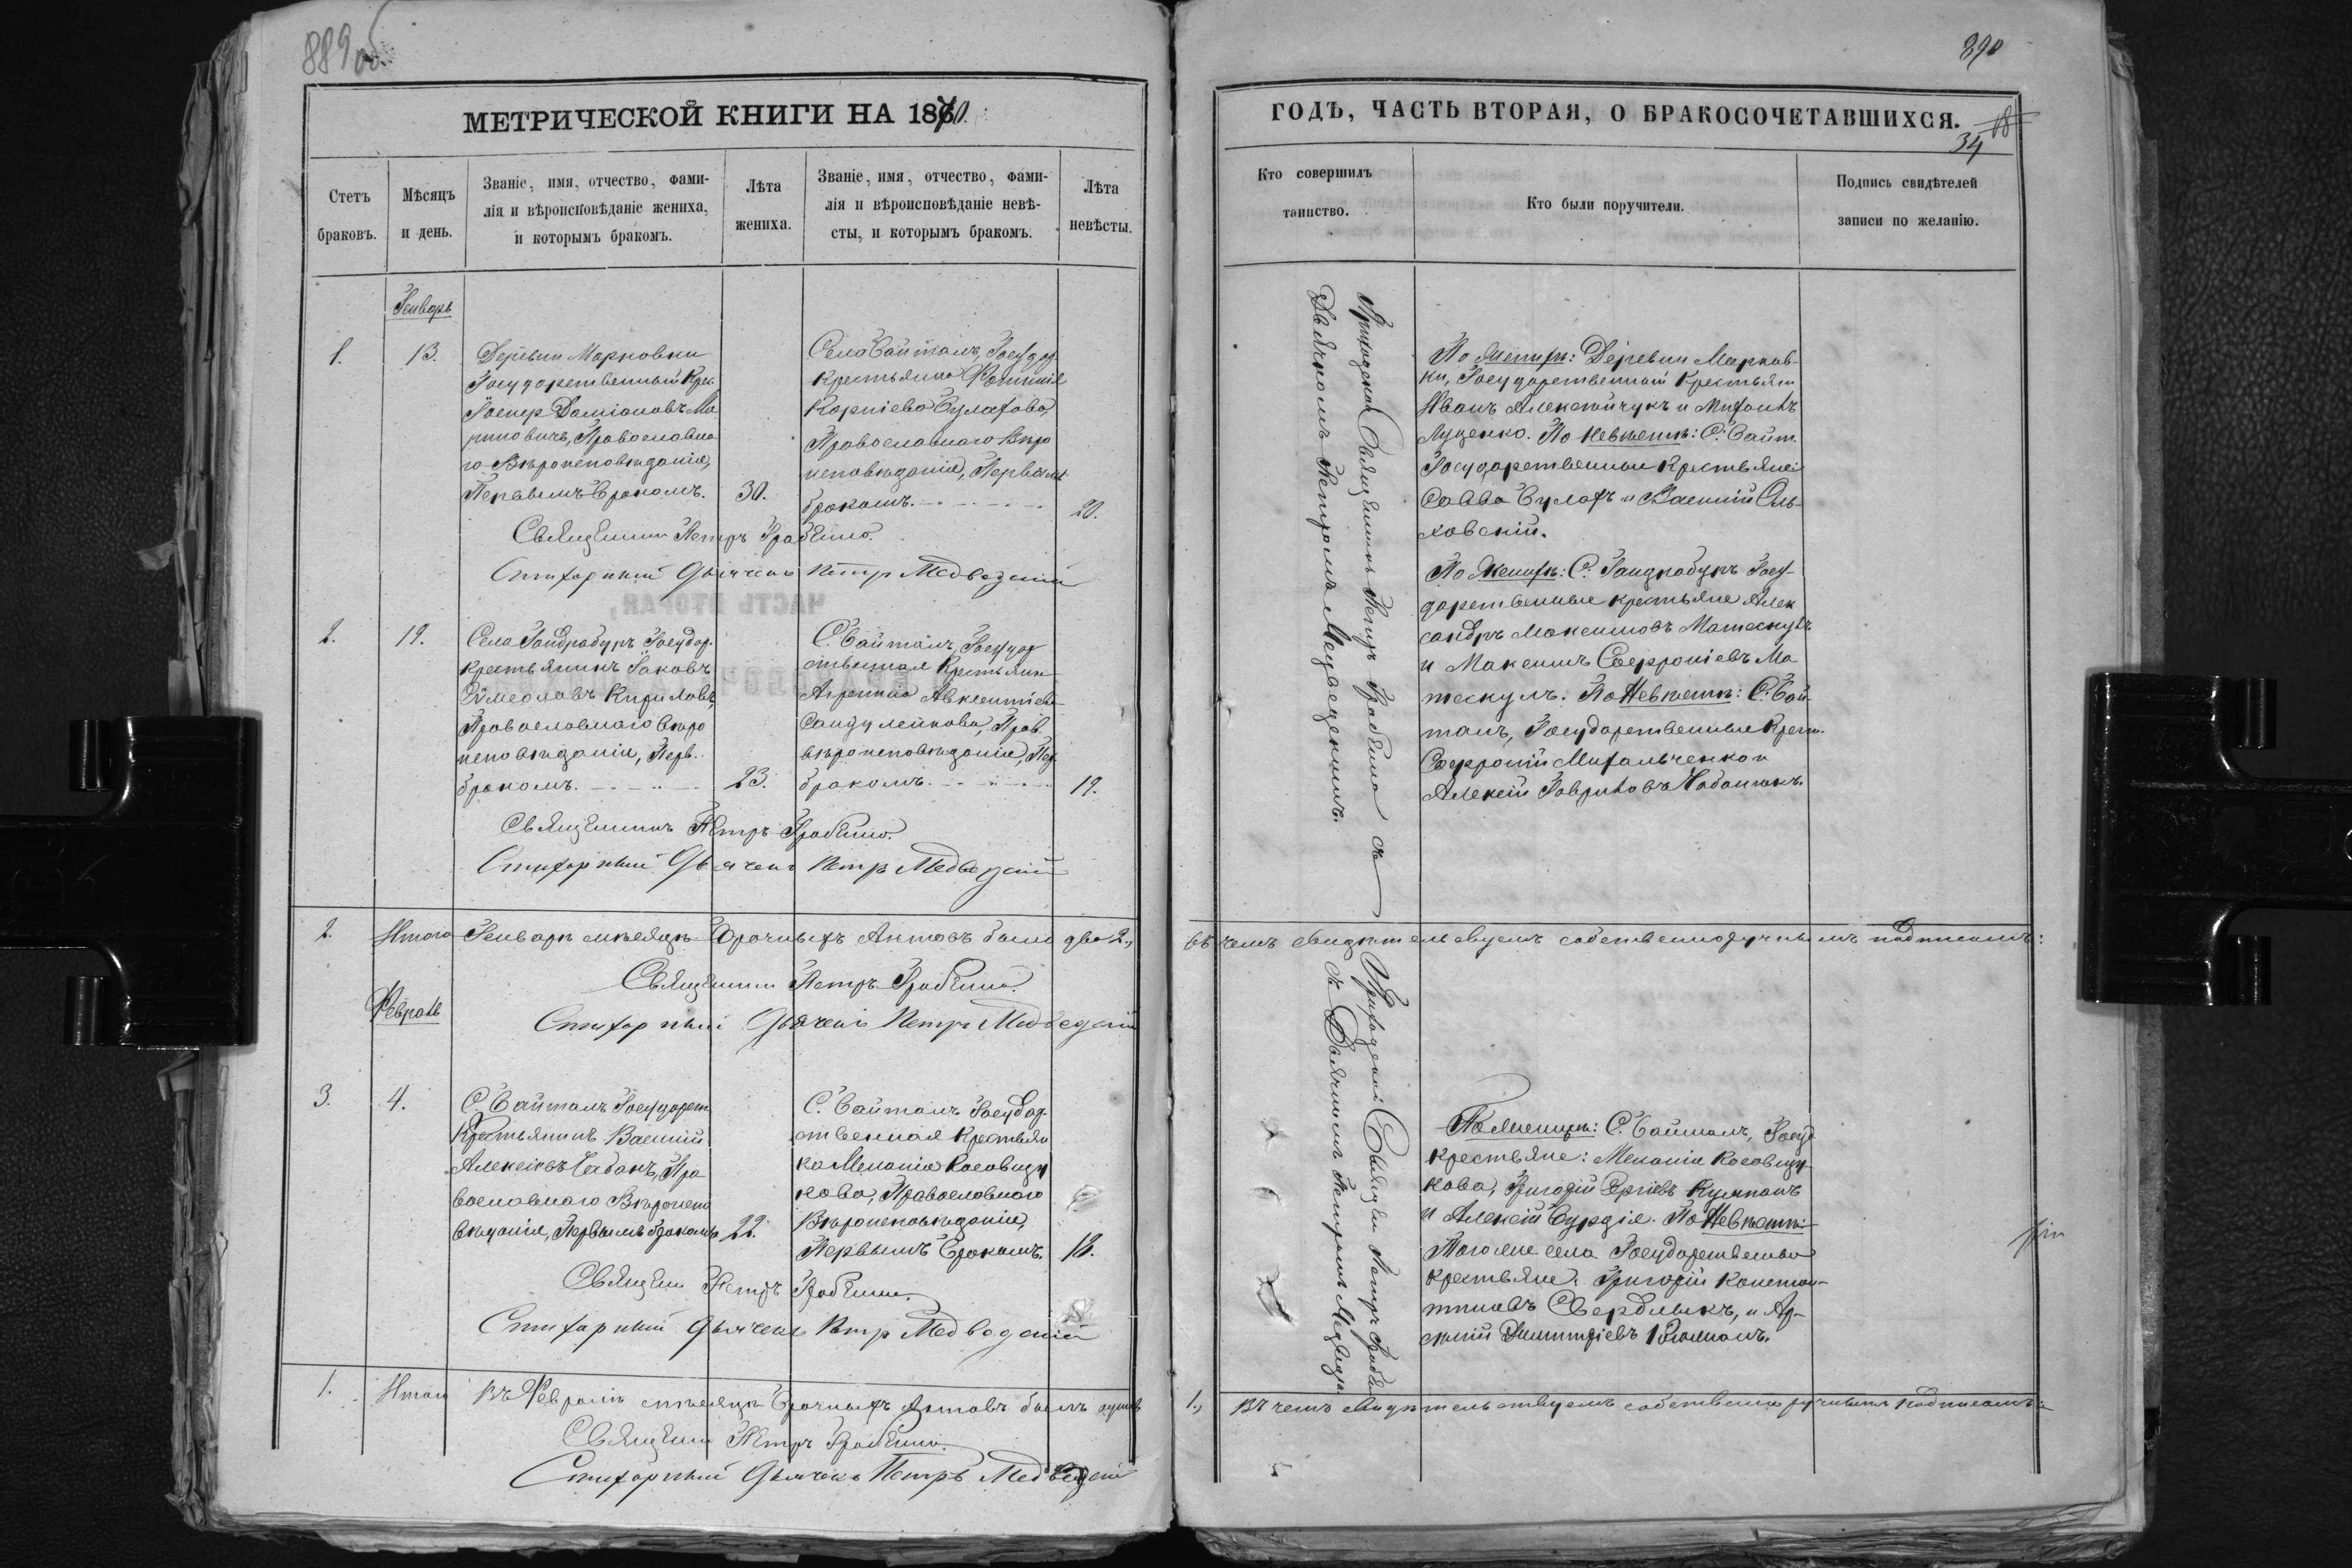 889 об.
МЕТРИЧЕСКОЙ КНИГИ НА 1870.
Счетъ
браковъ.
Мѣсяцъ
и день.
Званіе, имя, отчество, фами-
лія и вѣроисповѣданіе жениха,
и которымъ бракомъ.
Лѣта
жениха.
Званіе, имя, отчество, фами-
лія и вѣроисповѣданіе невѣ-
сты, и которымъ бракомъ.
Лѣта
невѣсты.
Генварь
1.
13.
Деревни Марковки
Государственный Крес.
Даміановъ Ма
риновичъ, Православна
го Вѣроисповѣданія,
Первымъ бракомъ.
30.
Села Байталъ, Государ.
крестьянка Фотинія
Карпіева Булахова,
Православнаго Вѣро
исповѣданія, Первымъ
бракомъ.
20.
Священникъ Петръ Грабенко.
Стихарный Дьячекъ Петръ Медведскій
2.
19.
Села Гандрабуръ Государ.
крестьянинъ Іаковъ
Сѵмеоновъ Кириловъ,
Православнаго вѣро
исповѣданія, Перв.
бракомъ.
23.
С. Байталъ, Государ
ственная Крестьян.
Агрепина Авксентіева
Сандулейкова, Прав.
вѣроисповѣданія, Пер.
бракомъ.
19.
Священникъ Петръ Грабенко.
Стихарный Дьячекъ Петръ Медведскій
2.
Итого Генварѣ мѣсяцѣ Брачныхъ Актовъ было два 2.,
Священникъ Петръ Грабенко.
Стихарный Дьячекъ Петръ Медведскій
Февраль
3.
4.
С. Байталъ Государст.
Крестьянинъ Василій
Алексіевъ Чабанъ, Пра
вославнаго Вѣроиспо
вѣданія, Первымъ бракомъ
22.
С. Байталъ Государ
ственная Крестьян
ка Меланія Косовщу
кова, Православнаго
Вѣроисповѣданія,
Первымъ бракомъ.
18.
Священ. Петръ Грабенко.
Стихарный Дьячекъ Петръ Медведскій
1.
Итого въ Февралѣ мѣсяцѣ Брачныхъ Актовъ былъ
Священ. Петръ Грабенко.
Стихарный Дьячекъ Петръ Медведскій
890
ГОДЪ, ЧАСТЬ ВТОРАЯ, О БРАКОСОЧЕТАВШИХСЯ.
34
Кто совершилъ
таинство.
Кто были поручители.
Подпись свидѣтелей
записи по желанію.
Приходскій Священникъ Петръ Грабенко съ
Дьячкомъ Петромъ Медведскимъ.
По Женихѣ: Деревни Марков-
ки, Государственный Крестьян
Иванъ Алексійчукъ и
Луценко. По невѣстѣ: С. Байт.
Государственные Крестьяне
Савва Булахъ и Василій Оль-
ховскій.
По Женихѣ: С. Гандрабуръ Госу-
дарственные крестьяне Алек
сандръ Максимовъ Матаскулъ
и Максимъ Софроніевъ Ма
таскулъ. По Невѣстѣ: С. Бай-
талъ, Государственные Крест.
Софроній Михальченко и
Алексій Гавриловъ Чабанъ.
въ чемъ свидѣтельствуемъ собственноручнымъ подписомъ:
Приходскій Священ. Петръ Грабен.
съ Дьячкомъ Петромъ Медведс.
По женихѣ: С. Байталъ, Госуд.
крестьяне: Меланія Косовщу-
кова, Григорій Сергіевъ
и Алексій Бурдія. По Невѣстѣ:
Того же села Государственные
крестьяне: Григорій Констан-
тиновъ Сверблыкъ, и Ар-
сеній Димитріевъ
1., Въ чемъ свидѣтельствуемъ собственноручнымъ подписомъ: